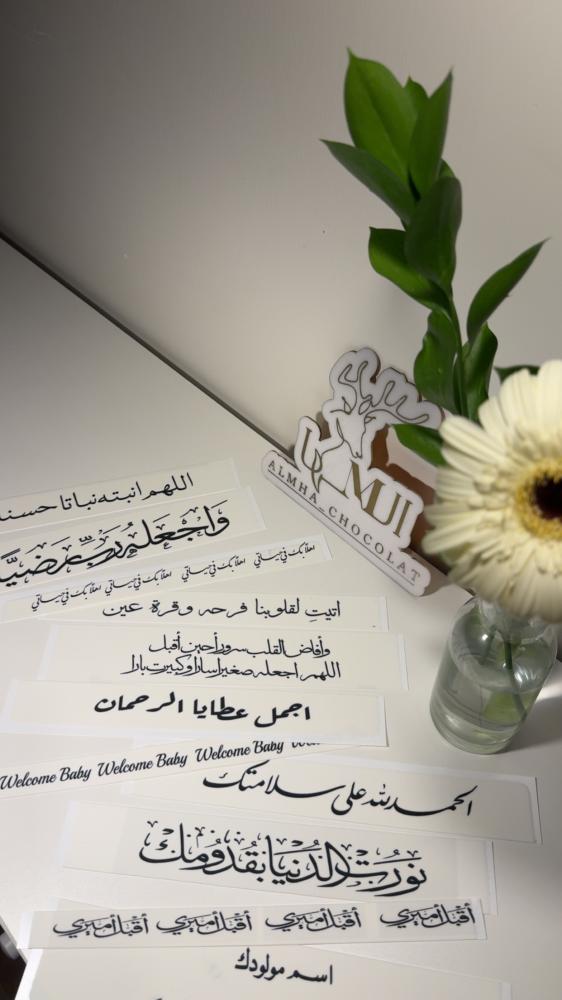 اللهم انبته نباتا حسنا
واجعله رب رضيا
اهلا بك في بيتي اهلا بك في بيتي اهلا بك في بيتي اهلا بك في بيتي
اتيت لقلوبنا فرحه وقرة عين
وأفاض القلب سرورا حين أقبل
اللهم اجعله صغيرا سارا وكبيرا بارا
اجمل عطايا الرحمان
Welcome Baby Welcome Baby Welcome Baby
الحمدلله على سلامتك
نورت الدنيا بقدومك
أقبل أميري أقبل أميري أقبل أميري أقبل أميري
اسم مولودك
ALMHA_CHOCOLAT